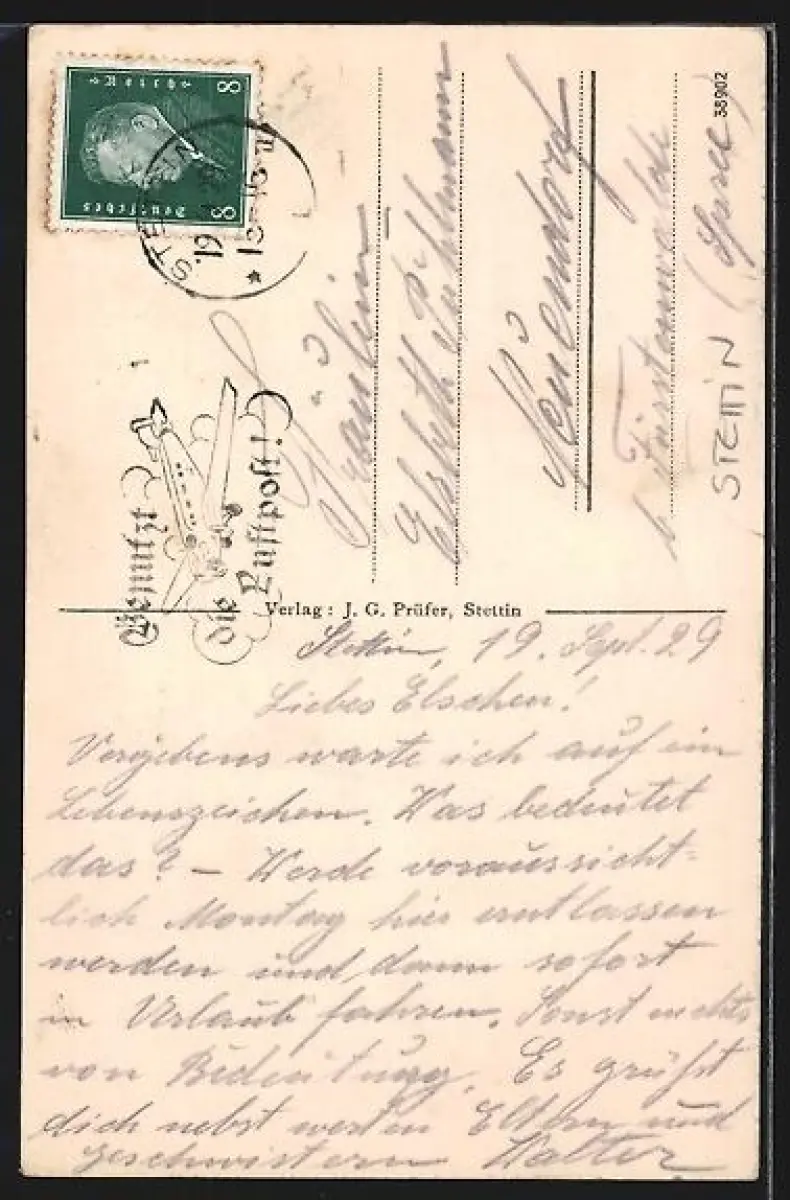 Deutsches Reich
8 8
STETTIN
19.
Benutzt
die Luftpost!
38902
Fräulein
Elsbeth
Neuendorf
b/ Fürstenwalde
(Spree)
STETTIN
Verlag: J. G. Prüfer, Stettin
Stettin, 19. Sept. 29
Liebes Elschen!
Vergebens warte ich auf ein
Lebenszeichen. Was bedeutet
das? – Werde voraussicht=
lich Montag hier entlassen
werden und dann sofort
in Urlaub fahren. Sonst nichts
von Bedeutung. Es grüßt
dich nebst werten Eltern und
Geschwistern Walter